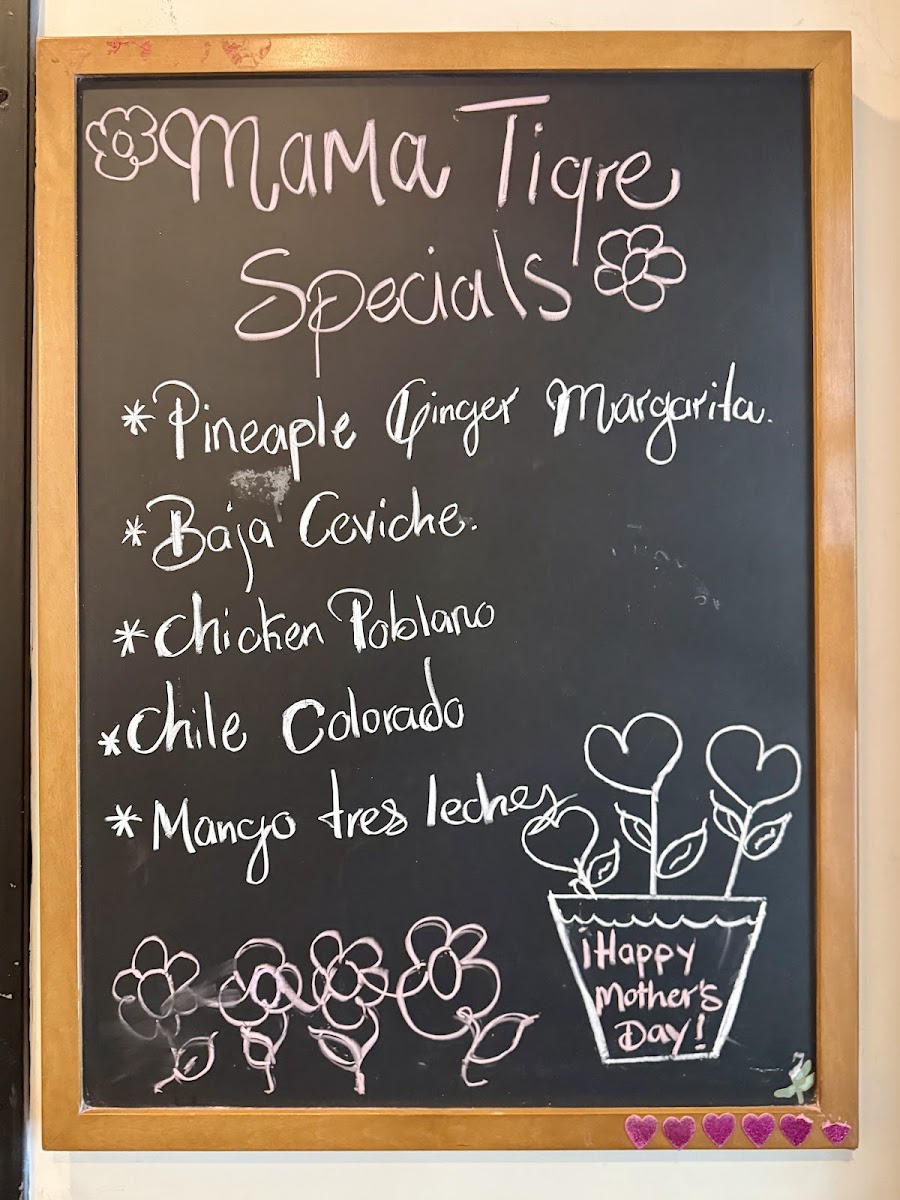 Mama Tigre
Specials
*Pineaple Ginger Margarita.
*Baja Ceviche.
*Chicken Poblano
*Chile Colorado
*Mango tres leches
¡Happy
Mother's
Day!